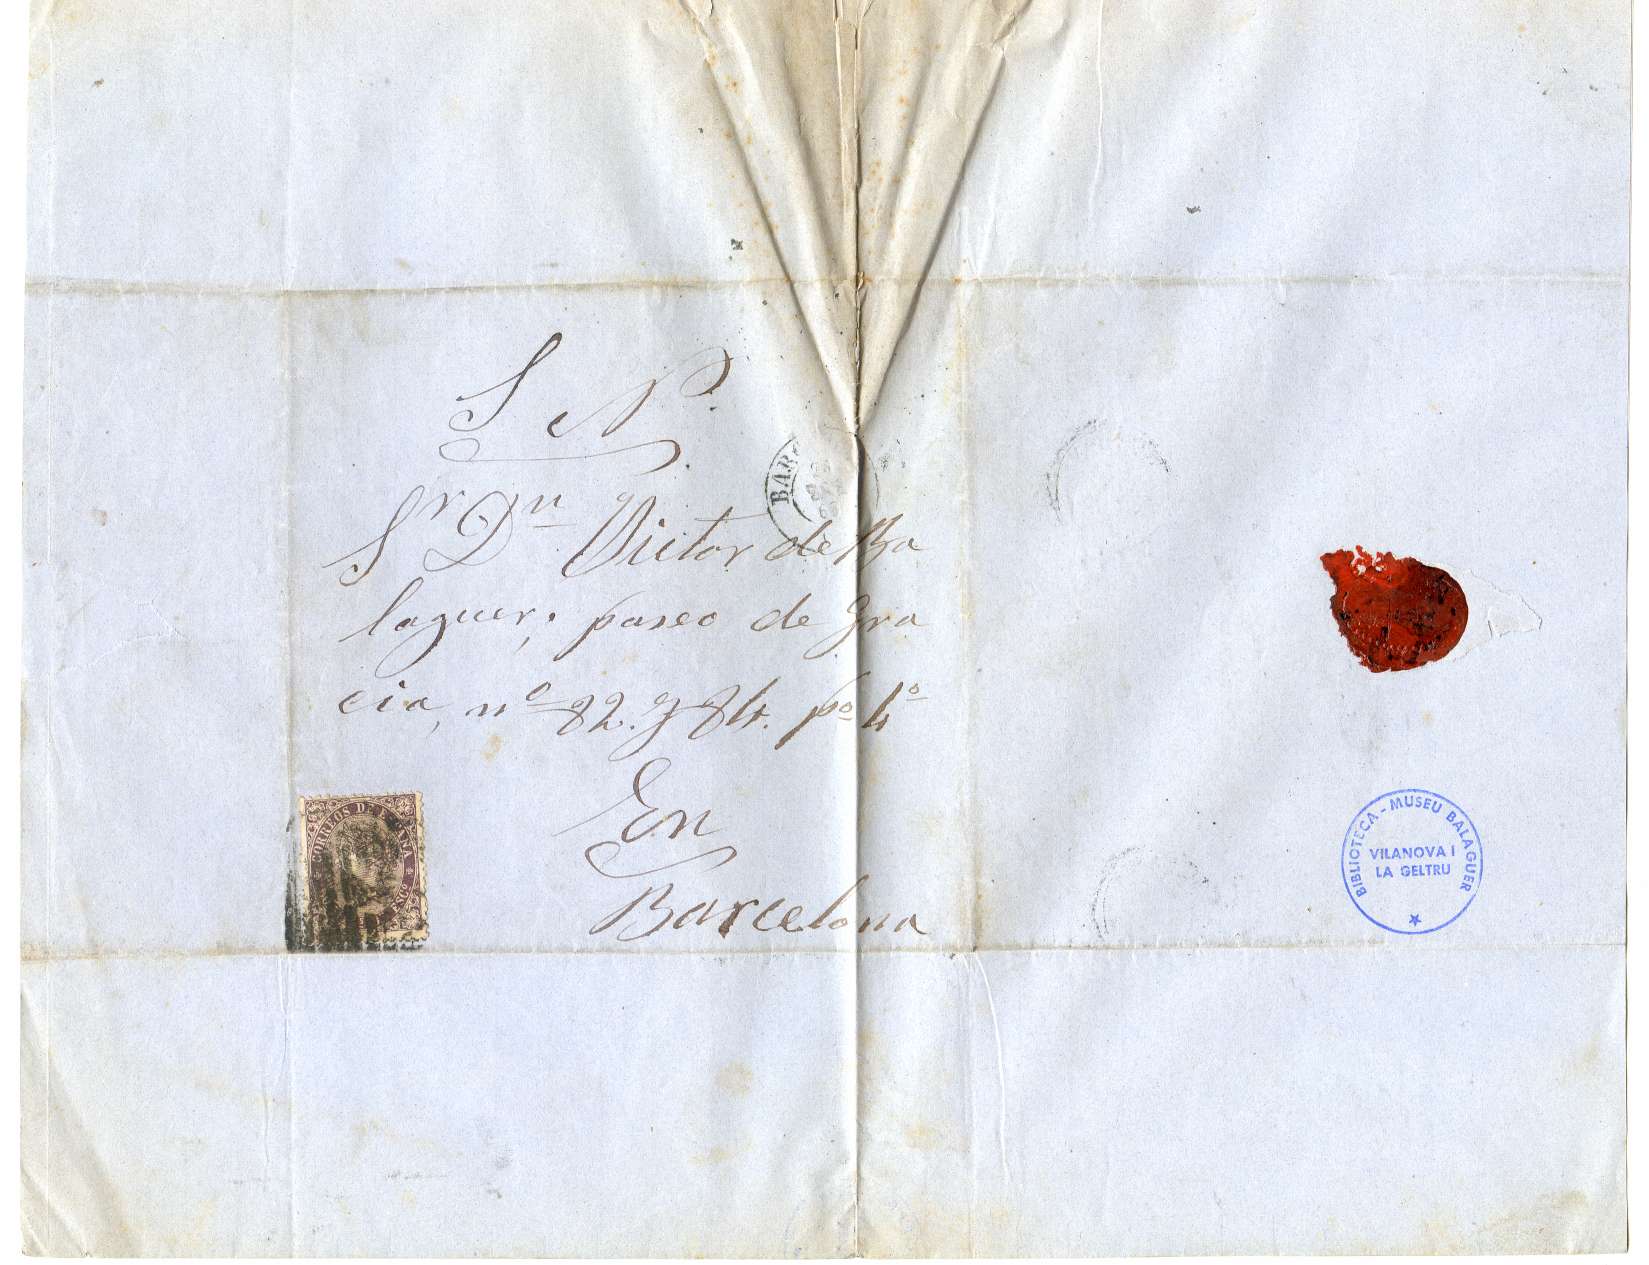 S N.
Sr Dn Victor de Ba
laguer; paseo de Gra
cia, nº 82 y 84. pº 4º
En
Barcelona
BAR
CORREOS DE ESPAÑA
BIBLIOTECA - MUSEU BALAGUER
VILANOVA I
LA GELTRU